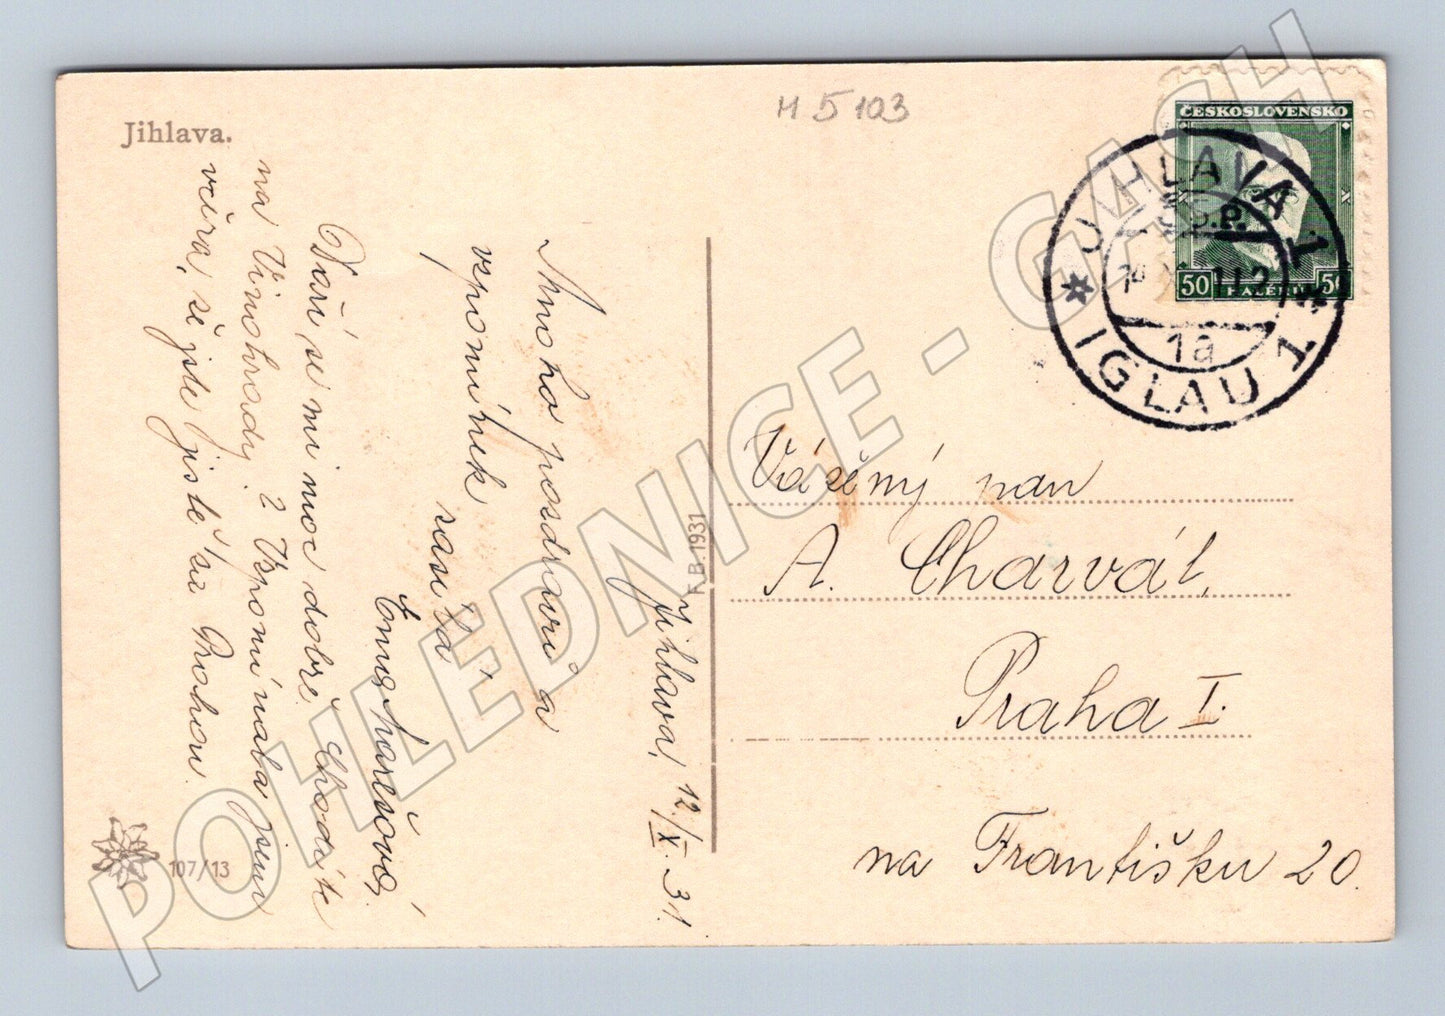 Jihlava.
H 5 103
ČESKOSLOVENSKO
50 HALÉŘŮ 50
JIHLAVA 1
Č.S.P.
1a
IGLAU 1
Jihlava, 12./X. 31.
Mnoho pozdravů a
vzpomínek
zasílá
Marešová.
Daří se mi moc dobře. Chodíte
na Vinohrady? Vzpomínala jsem
včera, že jste jistě za Prahou.
Vážený pan
A. Charvát,
Praha I.
na Františku 20.
F.B. 1931
107/13
POHLEDNICE - GACH